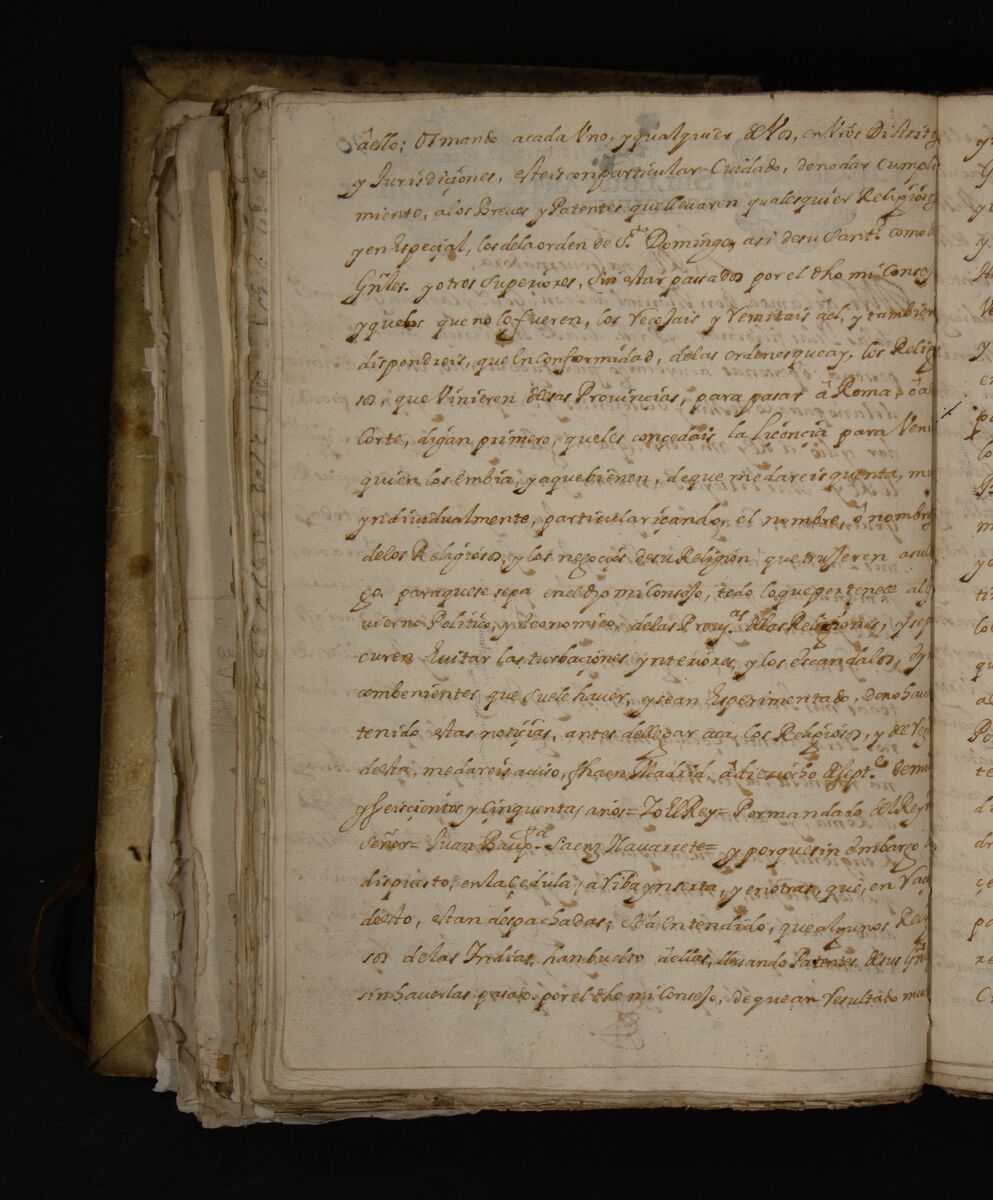 âello; Os mando acada Uno, y qualquier de Vos, en Vrôs Distrito
y Jurisdiçiones, esteis comparticular Cuidado, denodar Cumpli
miento, alos Breves y Patentes quellevaren qualesquier Religioso
yen Especial, los dela orden de Sto Domingo, asi desu Santd como
Gñles. y otros Superiores, Sin estar passados por el dho mi Conse
y quelos que no lo fueren, los Recojais y Remitais ael, y tambien
dispondreis, que en Conformidad, delas ordenes que ay, los Relig
sos, que Vinieren desas Provincias, para pasar â Roma, ô a
Corte, digan primero, queles conçedais la Liçençia para Veni
quien los embia, y aquebienen, deque medareis quenta, mu
yndividualmente, particulariçando, el nombre, ô nombre
delos Religiosos, y los negoçios desu Religion que trujeren asu
go. paraque se sepa enel dho mi Consejo, todo lo que perteneçe al
vierno Politico, y economico, delas Provas delas Religiones, y sep
curen Evitar las turbaçiones ynteriores, y los escandalos, e y
combenientes que suele haver, y sean Esperimentado, deno hav
tenido estas notiçias, antes dellegar aca, los Religiosos, y del Re
desta, medareis aviso, fha en Madrid, â dieziocho de sept.e demi
y seisçientos y çinquenta años = Yo el Rey = Por mandado del Rey
Señor = Juan Baupta Saenz Navarrete = y porque sin embargo
dispuesto, en la Çedula, a Riba ynserta, y en otras, que, en Ra
desto, estan despachadas; sea Entendido, que algunos Reli
sos delas Indias, han buelto âellas, llevando Patentes desus Gñl
sin haverlas pasado por el dho mi Consejo, deque an Resultado mu